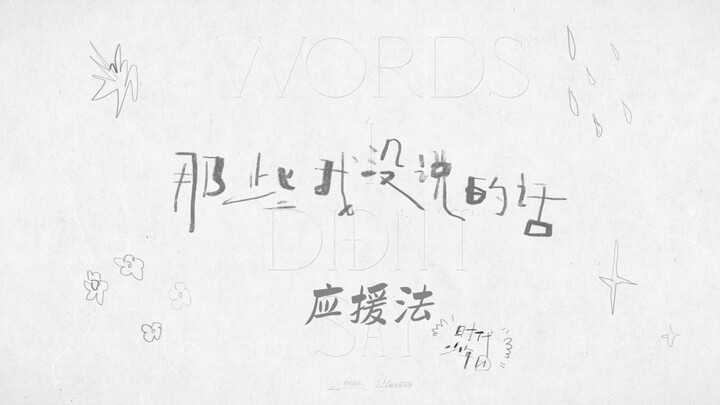 WORDS
I
那些我没说的话
DIDN'T
应援法
SAY
时代
少年团